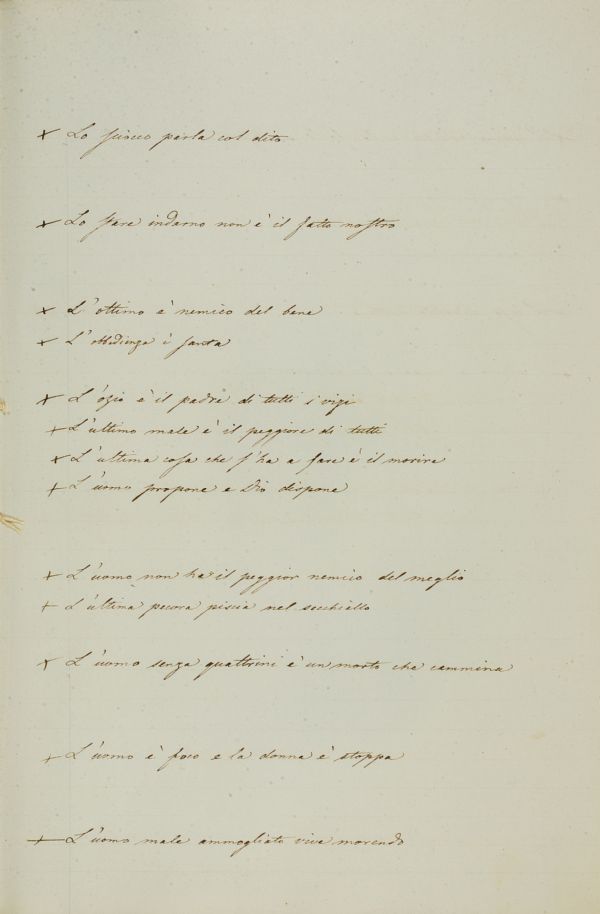 + Lo sciocco parla col dito
+ Lo stare indarno non è il fatto nostro
+ L'ottimo è nemico del bene
+ L'obbedienza è santa
+ L'ozio è il padre di tutti i vizi
+ L'ultimo male è il peggiore di tutti
+ L'ultima cosa che s'ha a fare è il morire
+ L'uomo propone e Dio dispone
+ L'uomo non ha il peggior nemico del meglio
+ L'ultima pecora piscia nel secchiello
+ L'uomo senza quattrini è un morto che cammina
+ L'uomo è foco e la donna è stoppa
+ L'uomo male ammogliato vive morendo